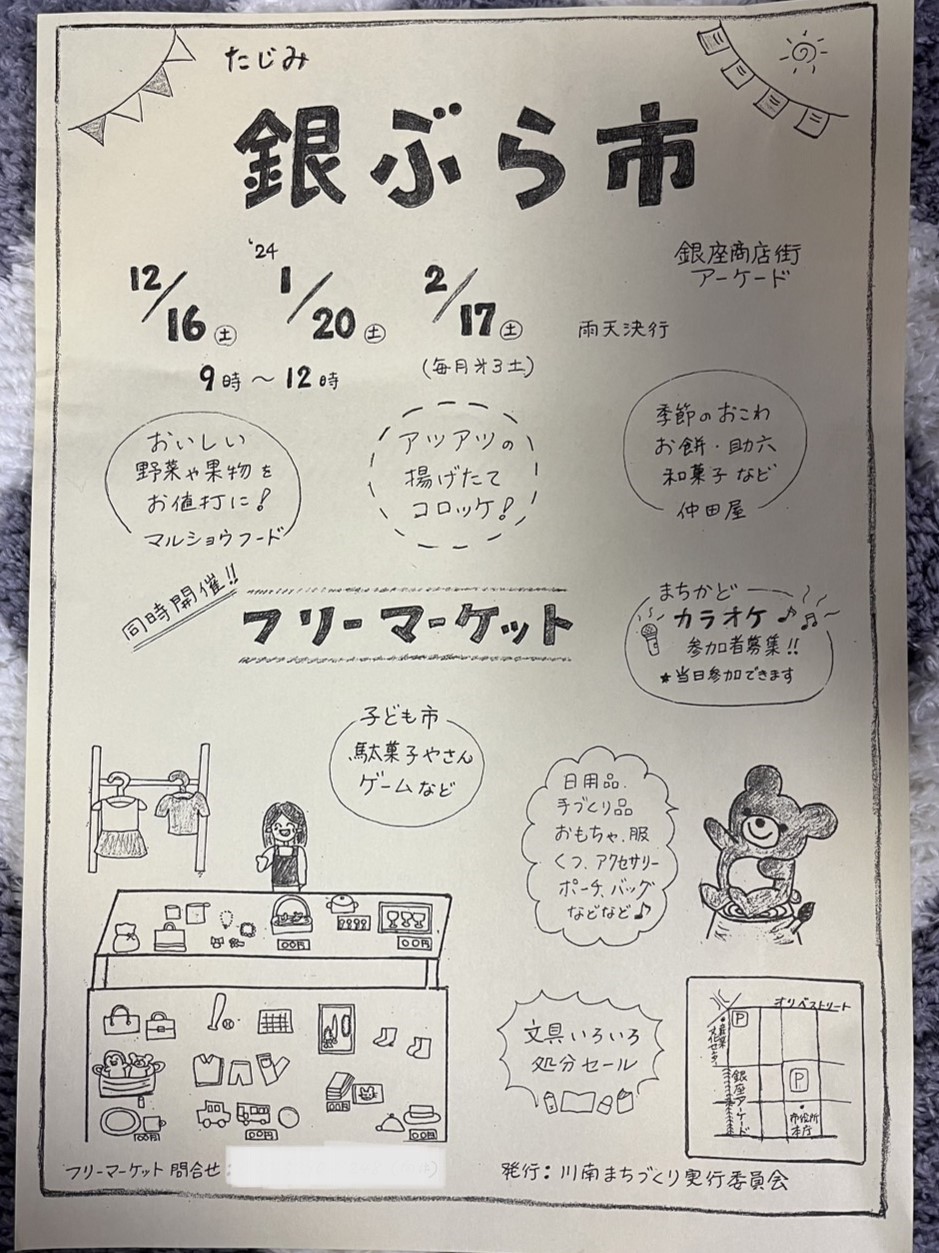 たじみ
銀ぶら市
12/16㊏
'24
1/20㊏
2/17㊏
(毎月㐧3土)
9時〜12時
雨天決行
銀座商店街
アーケード
おいしい
野菜や果物を
お値打に!
マルショウフード
アツアツの
揚げたて
コロッケ!
季節のおこわ
お餅・助六
和菓子など
仲田屋
同時開催!!
フリーマーケット
まちかど
カラオケ♪♫
参加者募集!!
★当日参加できます
子ども市
駄菓子やさん
ゲームなど
日用品、
手づくり品
おもちゃ、服
くつ、アクセサリー
ポーチ、バッグ
などなど♪
〇〇円
〇〇円
〇〇円
〇〇円
〇〇円
〇〇円
文具いろいろ
処分セール
オリベストリート
P
産業文化センター
銀座アーケード
P
市役所
本庁
フリーマーケット問合せ:
発行:川南まちづくり実行委員会